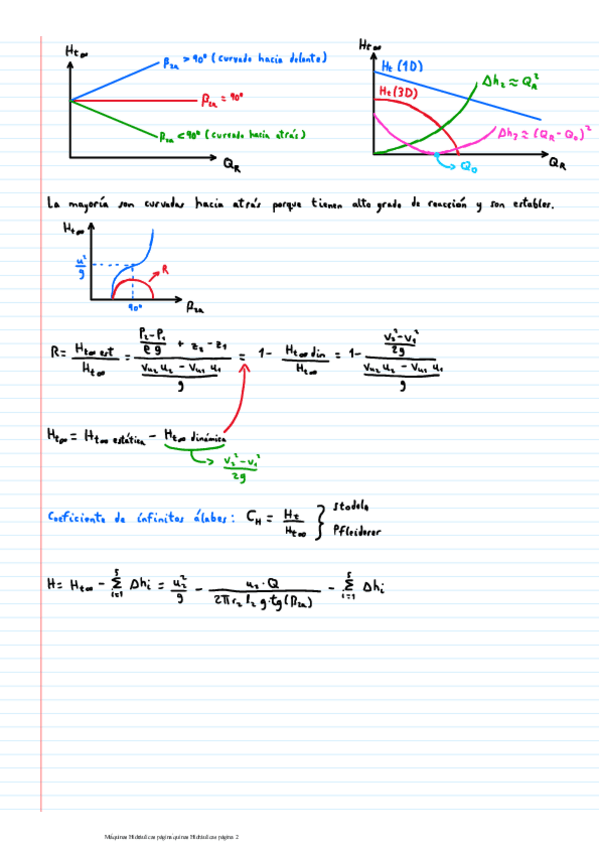 Ht∞
β2a > 90° (curvado hacia delante)
β2a = 90°
β2a < 90° (curvado hacia atrás)
QR
Ht∞
Ht (1D)
Ht (3D)
Δh1 ≈ QR²
Δh2 ≈ (QR - Q0)²
QR
Q0
La mayoría son curvadas hacia atrás porque tienen alto grado de reacción y son estables.
Ht∞
u²/g
R
90°
β2a
R = Ht∞ est / Ht∞ = ((P2 - P1)/(ρg) + z2 - z1) / ((Vu2 u2 - Vu1 u1)/g) = 1 - Ht∞ din / Ht∞ = 1 - ((V2² - V1²)/2g) / ((Vu2 u2 - Vu1 u1)/g)
Ht∞ = Ht∞ estática - Ht∞ dinámica
(V2² - V1²)/2g
Coeficiente de infinitos álabes: CH = Ht / Ht∞ } Stodola
Pfleiderer
H = Ht∞ - Σ(i=1, 5) Δhi = u2²/g - (u2 · Q)/(2π r2 b2 g · tg(β2a)) - Σ(i=1, 5) Δhi